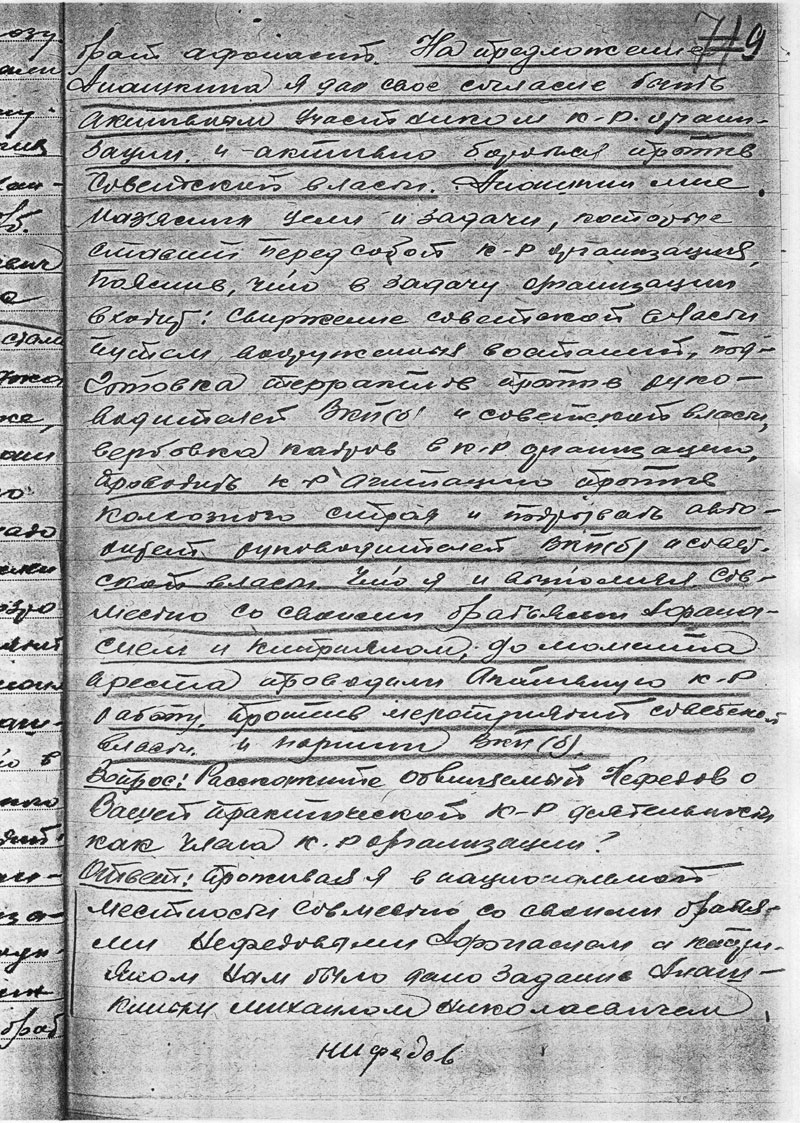 9
брат афонасий. На предложение
Анашкина я дал свое согласие быть
активным участником к-р. органи-
зации. и активно бороться против
Советской власти. Анашкин мне
изъяснил цели и задачи, которые
ставит перед собой к-р организация,
пояснив, что в задачу организации
входит: свержение советской власти
путем вооруженных востаний, под-
готовка террактов против руко-
водителей ВКП(б) и советской власти,
вербовка кадров в к-р организацию,
проводить к-р агитацию против
колхозного строя и подрывать авто-
ритет руководителей ВКП(б) и совет-
ской власти. Что я и выполнял сов-
местно со своими братьями Афона-
сием и Киприяном, до момента
ареста проводили активную к-р
работу, против мероприятий советской
власти. и партии ВКП(б).
Вопрос: Расскажите обвиняемый Нефедов о
Вашей практической к-р деятельности
как члена к.р организации?
Ответ: Проживая я в национальной
местности совместно со своими братья-
ми Нефедовыми Афонасием и Кипри-
яном нам было дано задание Анаш-
киным Михаилом Николаевичем,
Нифедов